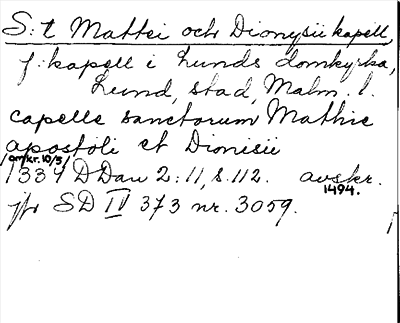 S:t Mattei och Dionysii kapell,
f. kapell i Lunds domkyrka,
Lund, stad, Malm. l.
capelle sanctorum Mathie
apostoli et Dionisii
(omkr. 10/5)
1334 DDan 2:11, s. 112. avskr.
1494.
jfr SD IV 373 nr. 3059.